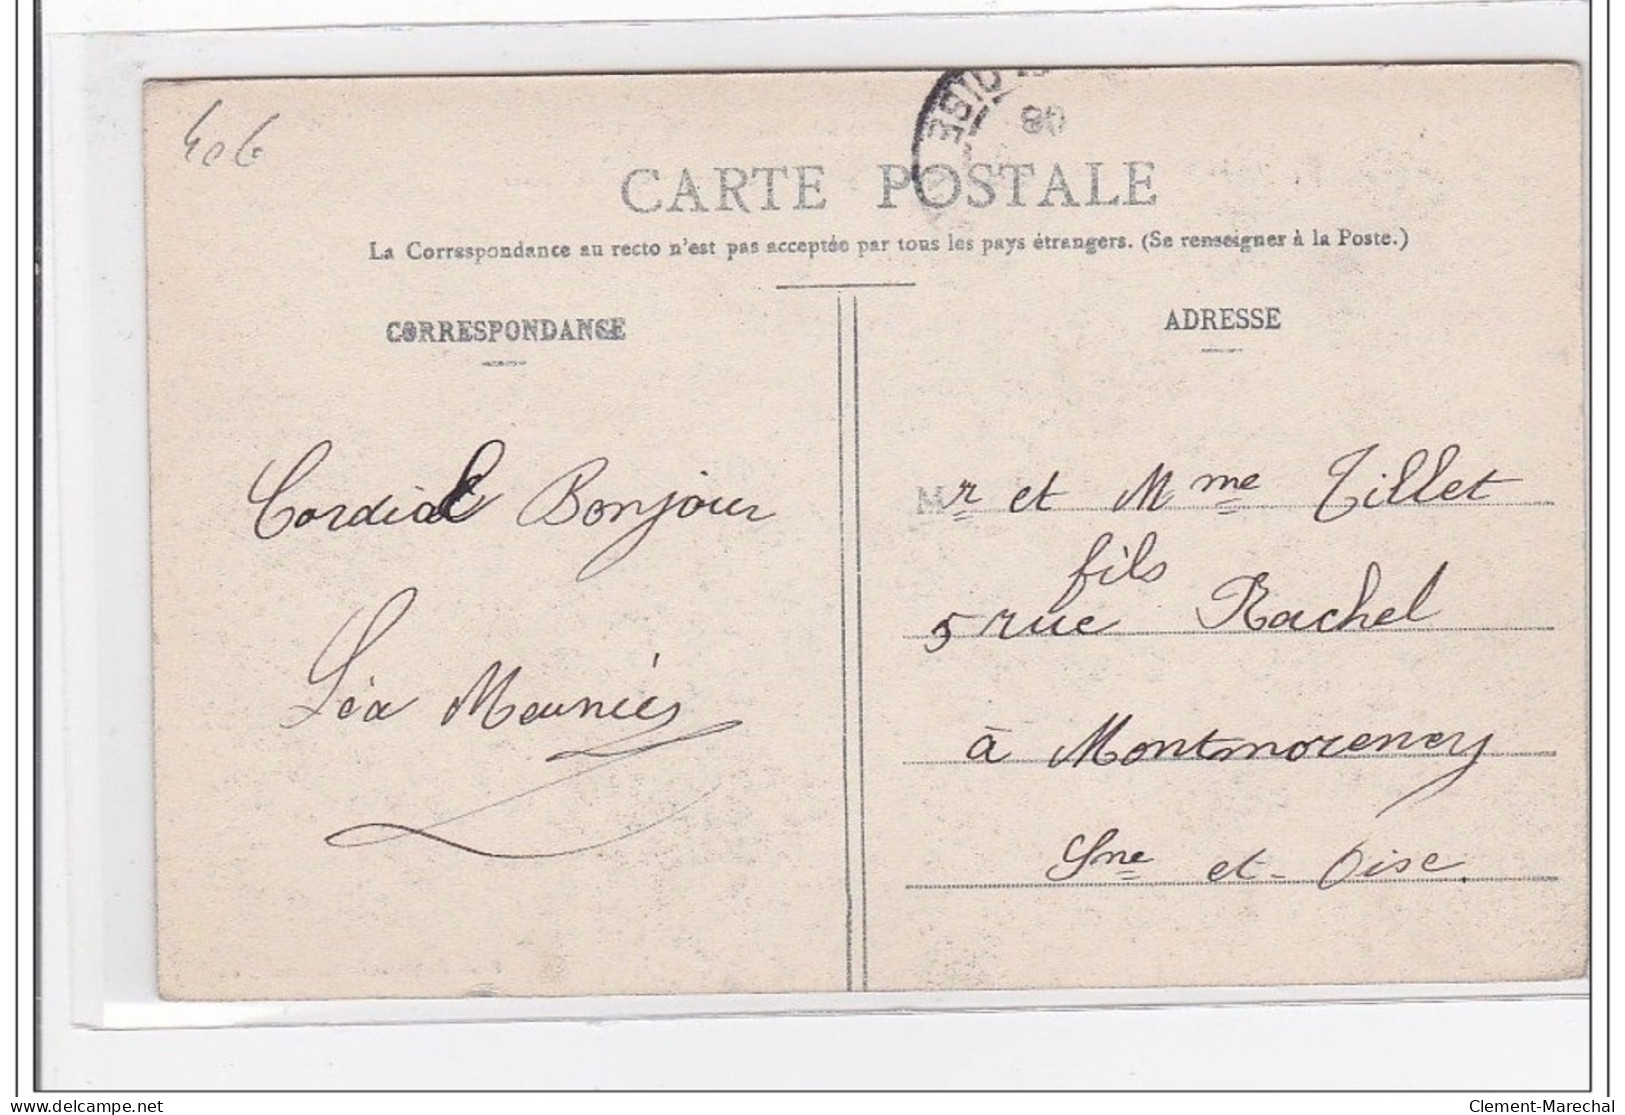 406
OISE
08
CARTE POSTALE
La Correspondance au recto n'est pas acceptée par tous les pays étrangers. (Se renseigner à la Poste.)
CORRESPONDANCE
Cordial Bonjour
Léa Meunier
ADRESSE
Mr et Mme Tillet
fils
5 rue Rachel
à Montmorency
Sne et Oise.
delcampe.net
Clement-Marechal